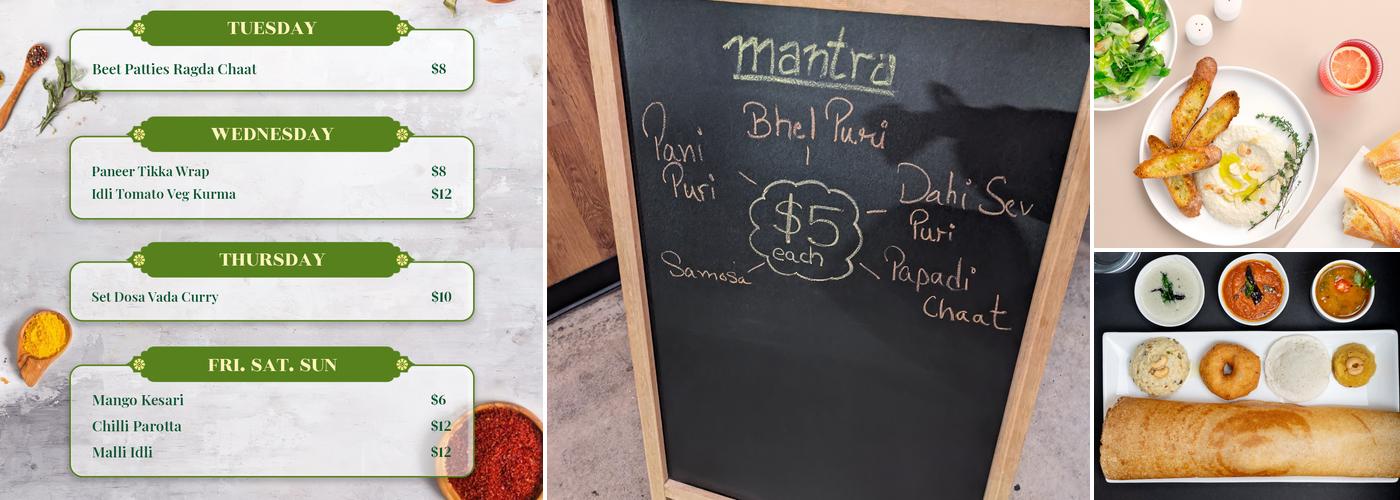 TUESDAY
Beet Patties Ragda Chaat $8
WEDNESDAY
Paneer Tikka Wrap $8
Idli Tomato Veg Kurma $12
THURSDAY
Set Dosa Vada Curry $10
FRI. SAT. SUN
Mango Kesari $6
Chilli Parotta $12
Malli Idli $12
mantra
Bhel Puri
Pani
Puri
Dahi Sev
Puri
$5
each
Samosa
Papadi
Chaat